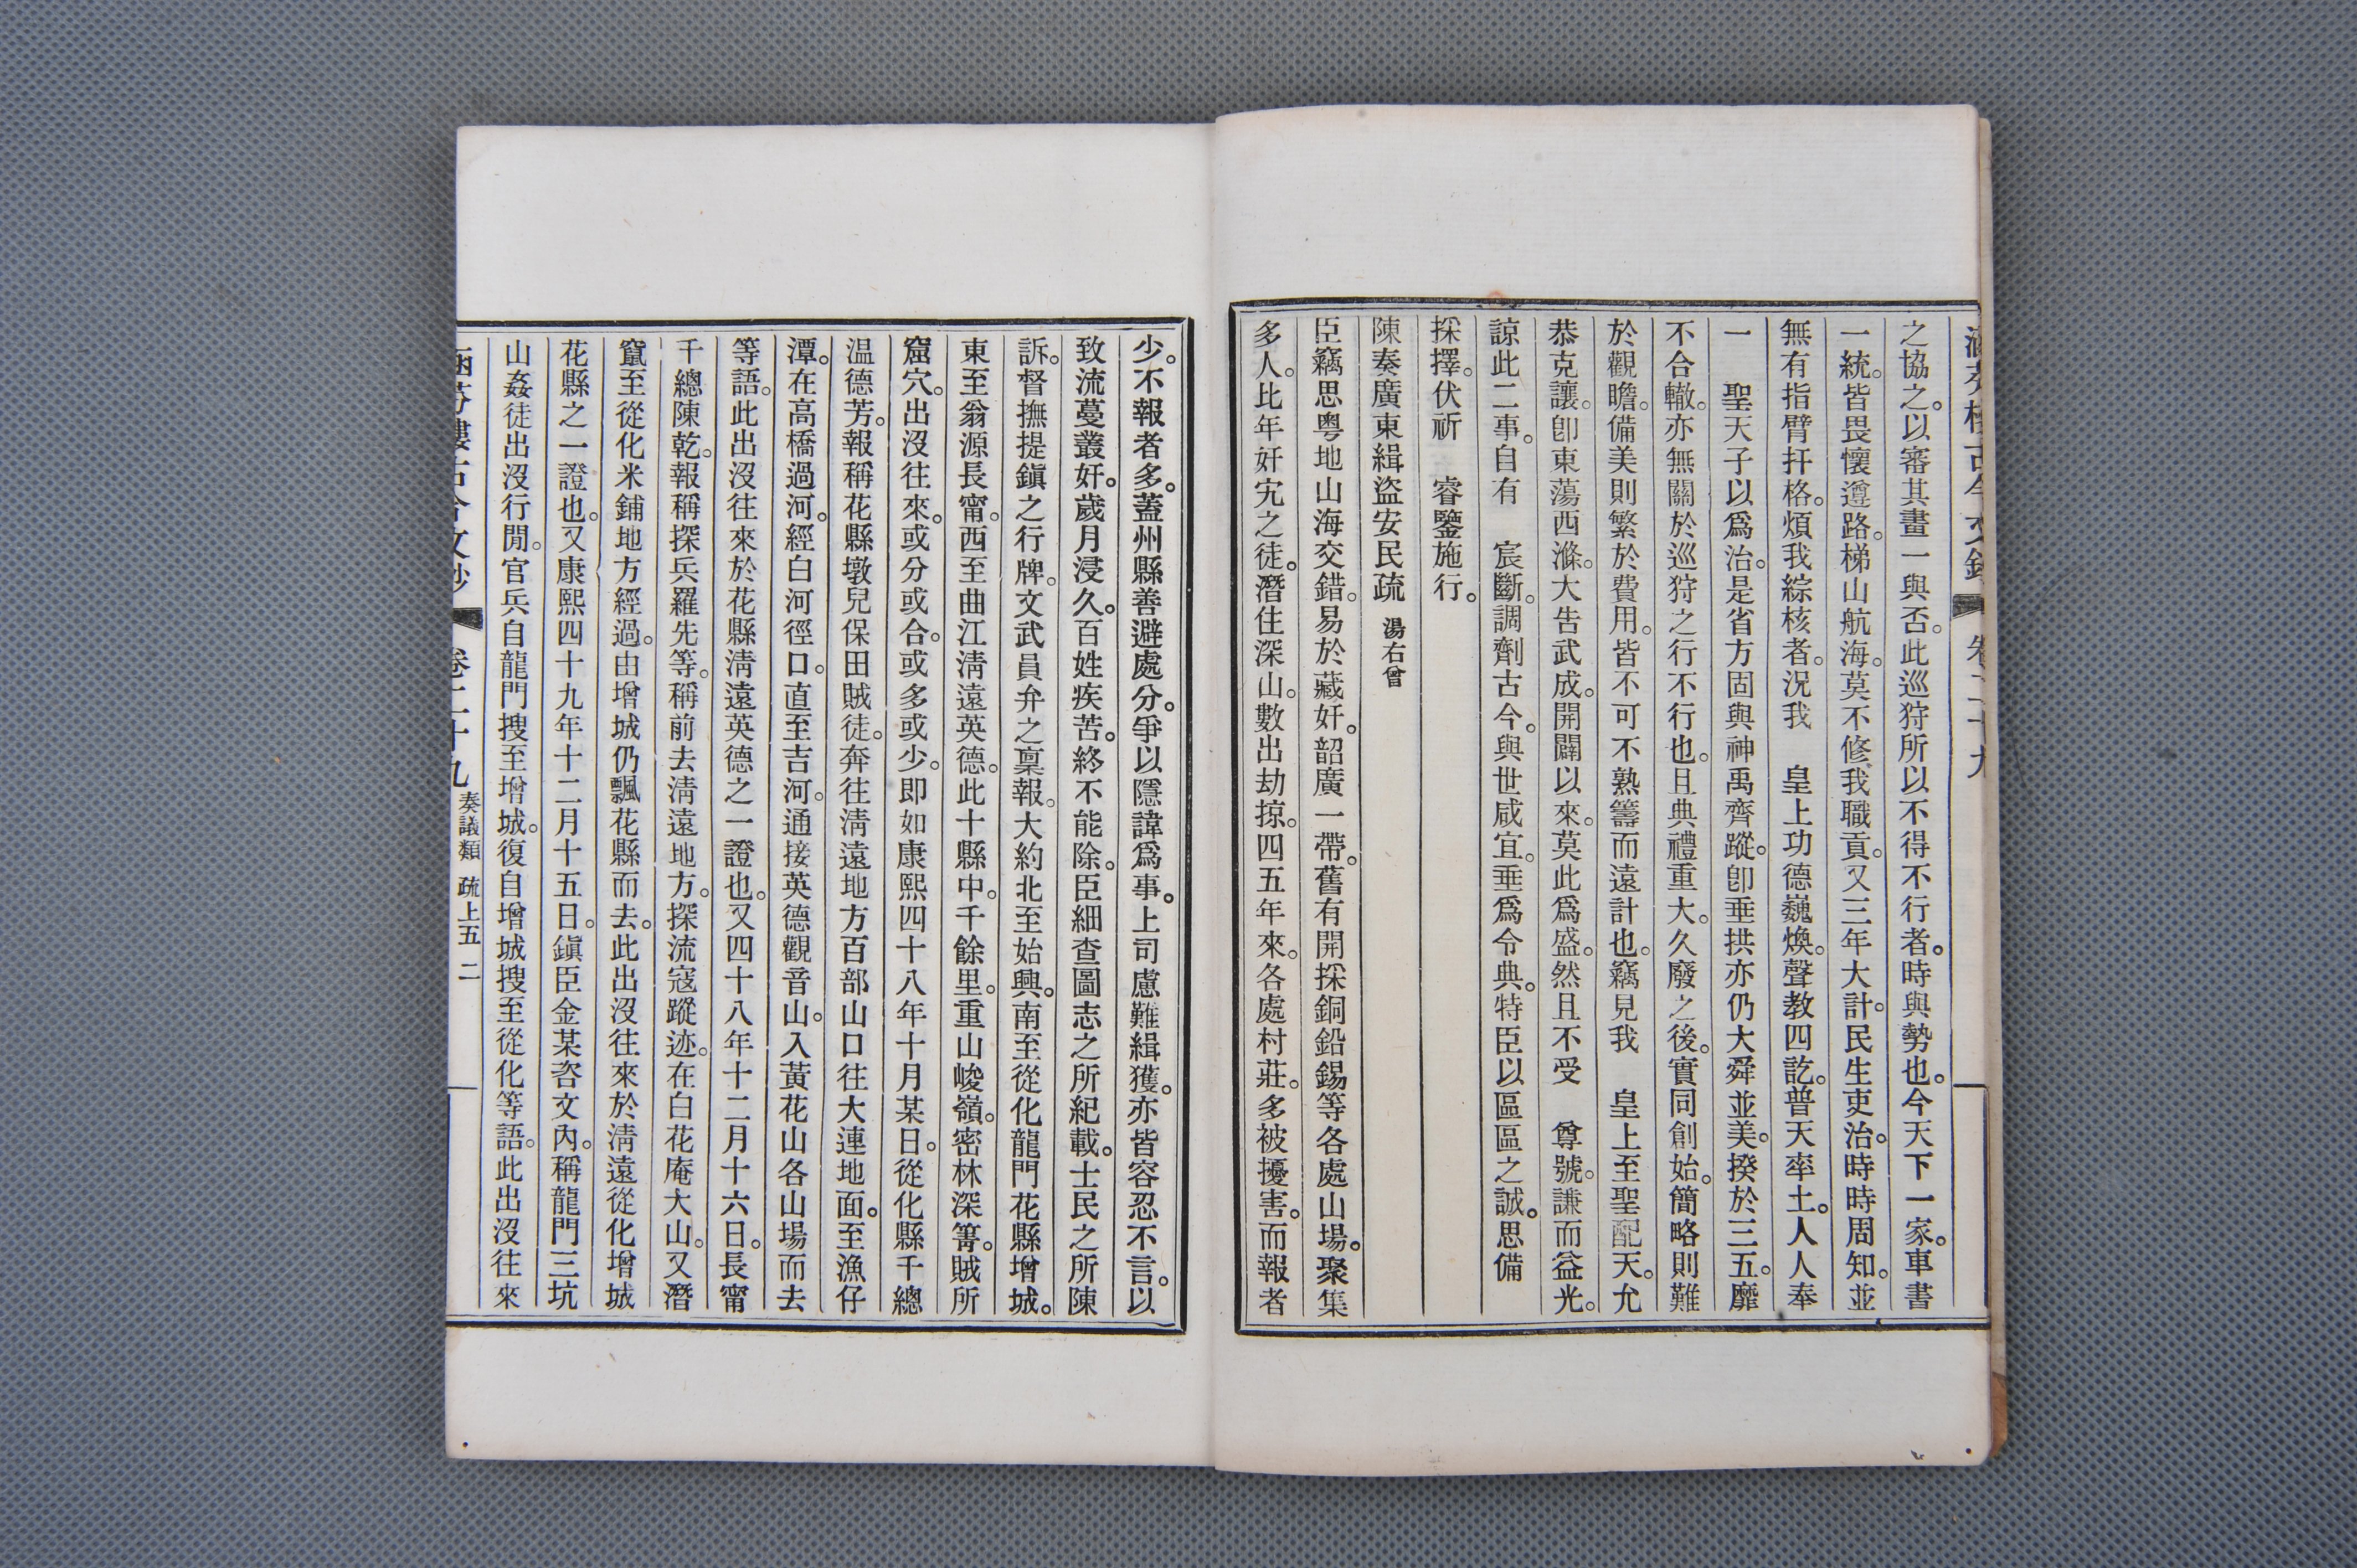 涵芬樓古今文鈔 卷二十九
之協之。以審其畫一與否。此巡狩所以不得不行者。時與勢也。今天下一家。車書
一統。皆畏懷遵路。梯山航海。莫不修我職貢。又三年大計。民生吏治。時時周知。並
無有指臂扞格。煩我綜核者。況我 皇上功德巍煥。聲教四訖。普天率土。人人奉
一 聖天子以爲治。是省方固與神禹齊蹤。卽垂拱亦仍大舜並美。揆於三五。靡
不合轍。亦無關於巡狩之行不行也。且典禮重大。久廢之後。實同創始。簡略則難
於觀瞻。備美則繁於費用。皆不可不熟籌而遠計也。竊見我 皇上至聖配天。允
恭克讓。卽東蕩西滌。大告武成。開闢以來。莫此爲盛。然且不受 尊號。謙而益光。
諒此二事。自有 宸斷。調劑古今。與世咸宜。垂爲令典。特臣以區區之誠。思備
採擇。伏祈 睿鑒施行。
陳奏廣東緝盜安民疏 湯右曾
臣竊思粤地山海交錯。易於藏奸。韶廣一帶。舊有開採銅鉛錫等各處山場。聚集
多人。比年奸宄之徒。潛住深山。數出劫掠。四五年來。各處村莊。多被擾害。而報者
少。不報者多。蓋州縣善避處分。爭以隱諱爲事。上司慮難緝獲。亦皆容忍不言。以
致流蔓叢奸。歲月浸久。百姓疾苦。終不能除。臣細查圖志之所紀載。士民之所陳
訴。督撫提鎭之行牌。文武員弁之稟報。大約北至始興。南至從化龍門花縣增城。
東至翁源長甯。西至曲江淸遠英德。此十縣中。千餘里。重山峻嶺。密林深箐。賊所
窟穴。出沒往來。或分或合。或多或少。即如康熙四十八年十月某日。從化縣千總
温德芳。報稱花縣墩兒保田賊徒。奔往淸遠地方百部山口往大連地面。至漁仔
潭。在高橋過河。經白河徑口。直至吉河。通接英德觀音山。入黃花山各山場而去
等語。此出沒往來於花縣淸遠英德之一證也。又四十八年十二月十六日。長甯
千總陳乾。報稱探兵羅先等。稱前去淸遠地方。探流寇蹤迹。在白花庵大山。又潛
竄至從化米鋪地方經過。由增城仍飄花縣而去。此出沒往來於淸遠從化增城
花縣之一證也。又康熙四十九年十二月十五日。鎭臣金某咨文內。稱龍門三坑
山姦徒出沒行閒。官兵自龍門搜至增城。復自增城搜至從化等語。此出沒往來
涵芬樓古今文鈔 卷二十九 奏議類 疏上五 二